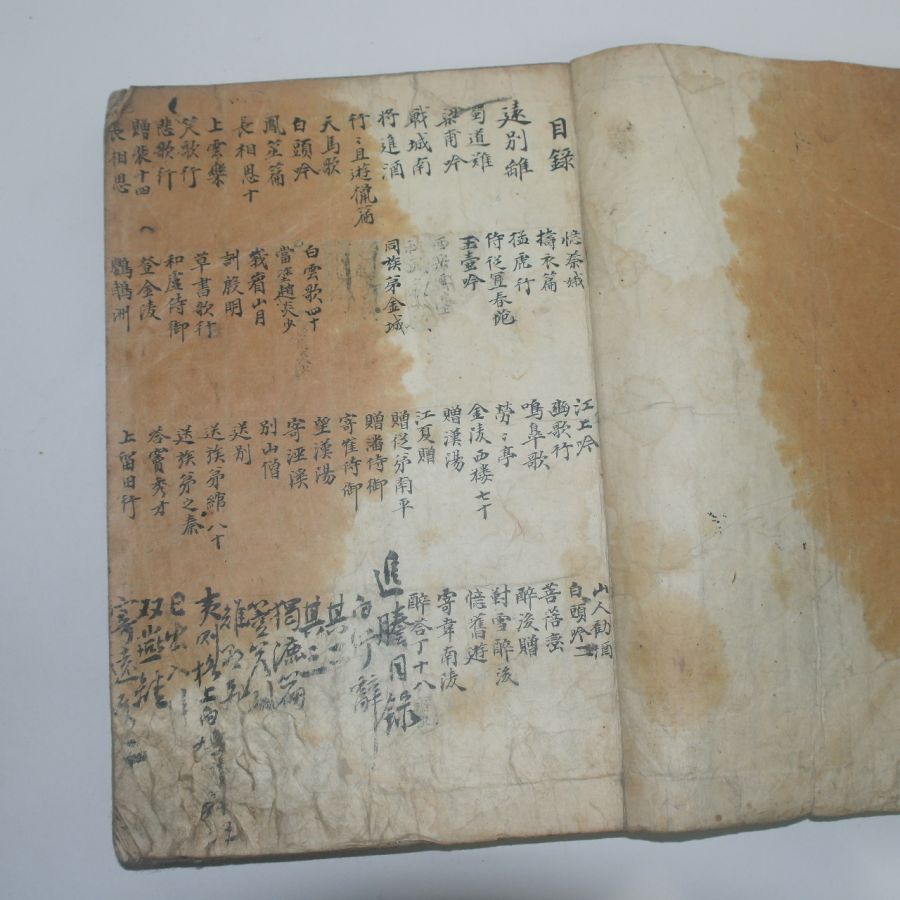 目錄
遠別離
蜀道難
梁甫吟
戰城南
將進酒
行〻且遊獵篇
天馬歌
白頭吟
鳳笙篇
長相思十
上雲樂
笑歌行
悲歌行
贈裴十四
長相思
憶秦娥
擣衣篇
猛虎行
侍從宜春苑
玉壺吟
同族弟金城
白雲歌四十
當塗趙炎少
峨眉山月
酬殷明
草書歌行
和盧侍御
登金陵
鸚鵡洲
江上吟
幽歌行
鳴皐歌
勞〻亭
金陵西樓七十
贈漢陽
江夏贈
贈從弟南平
贈潘侍御
寄崔侍御
望漢陽
寄涇溪
別山僧
送別
送族弟綰八十
送族弟之秦
答竇秀才
上留田行
山人勸酒
白頭吟二
菩薩蠻
醉後贈
對雪醉後
憶舊遊
寄韋南陵
醉答丁十八
追謄目錄
其二
其三
獨漉篇
日出入行
双燕離
寄遠